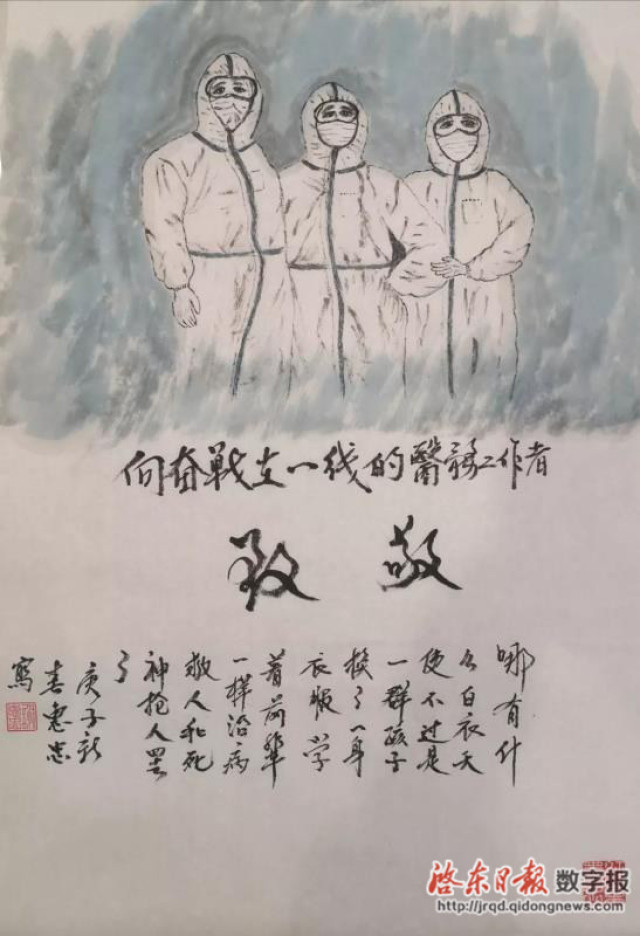 向奋戰在一线的醫務工作者
致敬
哪有什
么白衣天
使不过是
一群孩子
换了一身
衣服学
着前辈
一样治病
救人和死
神抢人罢
了
庚子新
春惠忠
寫
啓东日报 数字报
http://jrqd.qidongnews.com